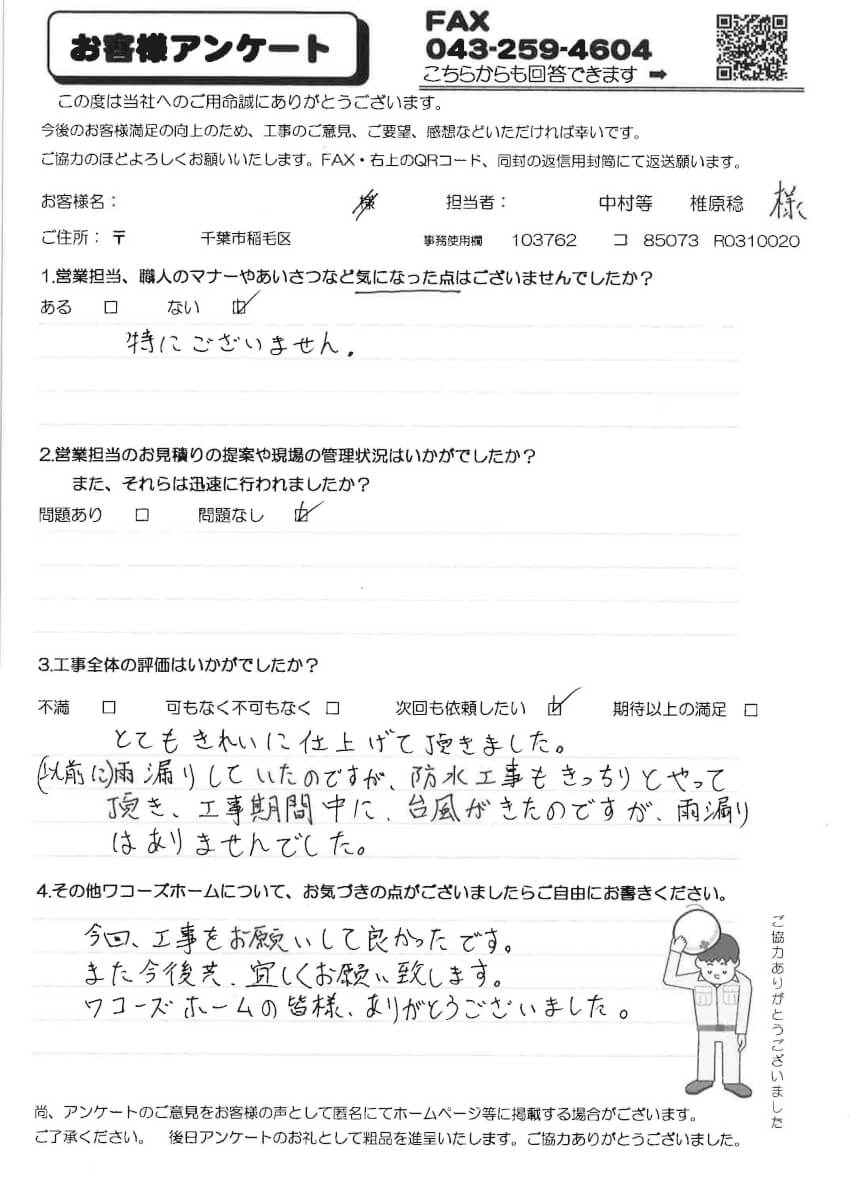 お客様アンケート
FAX
043-259-4604
こちらからも回答できます ➡
この度は当社へのご用命誠にありがとうございます。
今後のお客様満足の向上のため、工事のご意見、ご要望、感想などいただければ幸いです。
ご協力のほどよろしくお願いいたします。FAX・右上のQRコード、同封の返信用封筒にて返送願います。
お客様名： 様 担当者： 中村等 椎原稔 様
ご住所：〒 千葉市稲毛区 事務使用欄 103762 コ 85073 R0310020
1.営業担当、職人のマナーやあいさつなど気になった点はございませんでしたか？
ある □ ない ☑
特にございません.
2.営業担当のお見積りの提案や現場の管理状況はいかがでしたか？
また、それらは迅速に行われましたか？
問題あり □ 問題なし ☑
3.工事全体の評価はいかがでしたか？
不満 □ 可もなく不可もなく □ 次回も依頼したい ☑ 期待以上の満足 □
とてもきれいに仕上げて頂きました。
(以前に)雨漏りしていたのですが、防水工事もきっちりとやって
頂き、工事期間中に、台風がきたのですが、雨漏り
はありませんでした。
4.その他ワコーズホームについて、お気づきの点がございましたらご自由にお書きください。
今回、工事をお願いして良かったです。
また今後共、宜しくお願い致します。
ワコーズホームの皆様、ありがとうございました。
ご協力ありがとうございました
尚、アンケートのご意見をお客様の声として匿名にてホームページ等に掲載する場合がございます。
ご了承ください。 後日アンケートのお礼として粗品を進呈いたします。ご協力ありがとうございました。